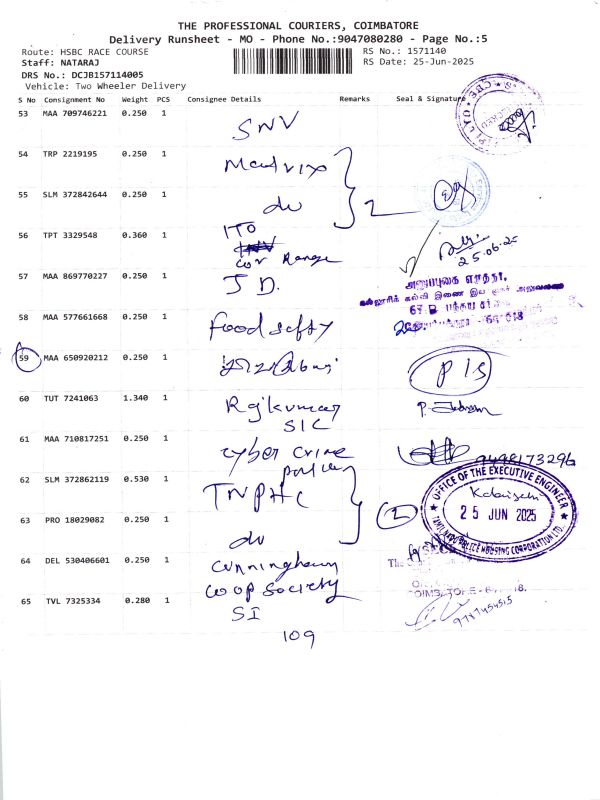 THE PROFESSIONAL COURIERS, COIMBATORE
Delivery Runsheet - MO - Phone No.:9047080280 - Page No.:5
Route: HSBC RACE COURSE
RS No.: 1571140
Staff: NATARAJ
RS Date: 25-Jun-2025
DRS No.: DCJB157114005
Vehicle: Two Wheeler Delivery
S No Consignment No Weight PCS Consignee Details Remarks Seal & Signature
53 MAA 709746221 0.250 1 SNV
54 TRP 2219195 0.250 1
55 SLM 372842644 0.250 1 do 2
56 TPT 3329548 0.360 1 ITO
Range
25.06.25
57 MAA 869770227 0.250 1 J D.
58 MAA 577661668 0.250 1 Food safty
59 MAA 650920212 0.250 1 P/S
60 TUT 7241063 1.340 1 Rajkumar
SIC
61 MAA 710817251 0.250 1 cyber crime
police
9498173296
62 SLM 372862119 0.530 1 TNPHC
OFFICE OF THE EXECUTIVE ENGINEER
25 JUN 2025
TAMILNADU POLICE HOUSING CORPORATION LTD.
63 PRO 18029082 0.250 1 do 2
64 DEL 530406601 0.250 1 Cunningham
Coop Society
65 TVL 7325334 0.280 1 SI
109